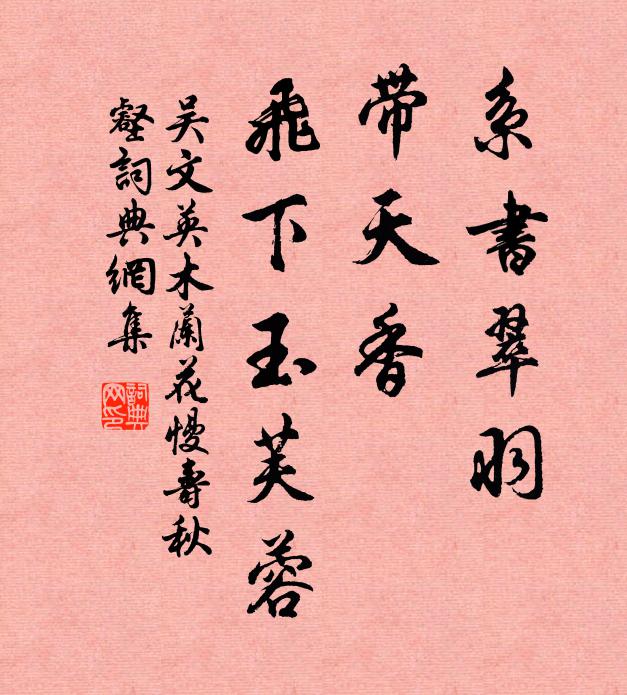 系書翠羽
帶天香
飛下玉芙蓉
吴文英木蘭花慢壽秋
壑詞典網集
詞典網印